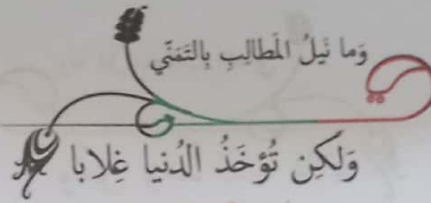 وَما نَيلُ المَطالِبِ بِالتَمَنّي
وَلَكِن تُؤخَذُ الدُنيا غِلابا